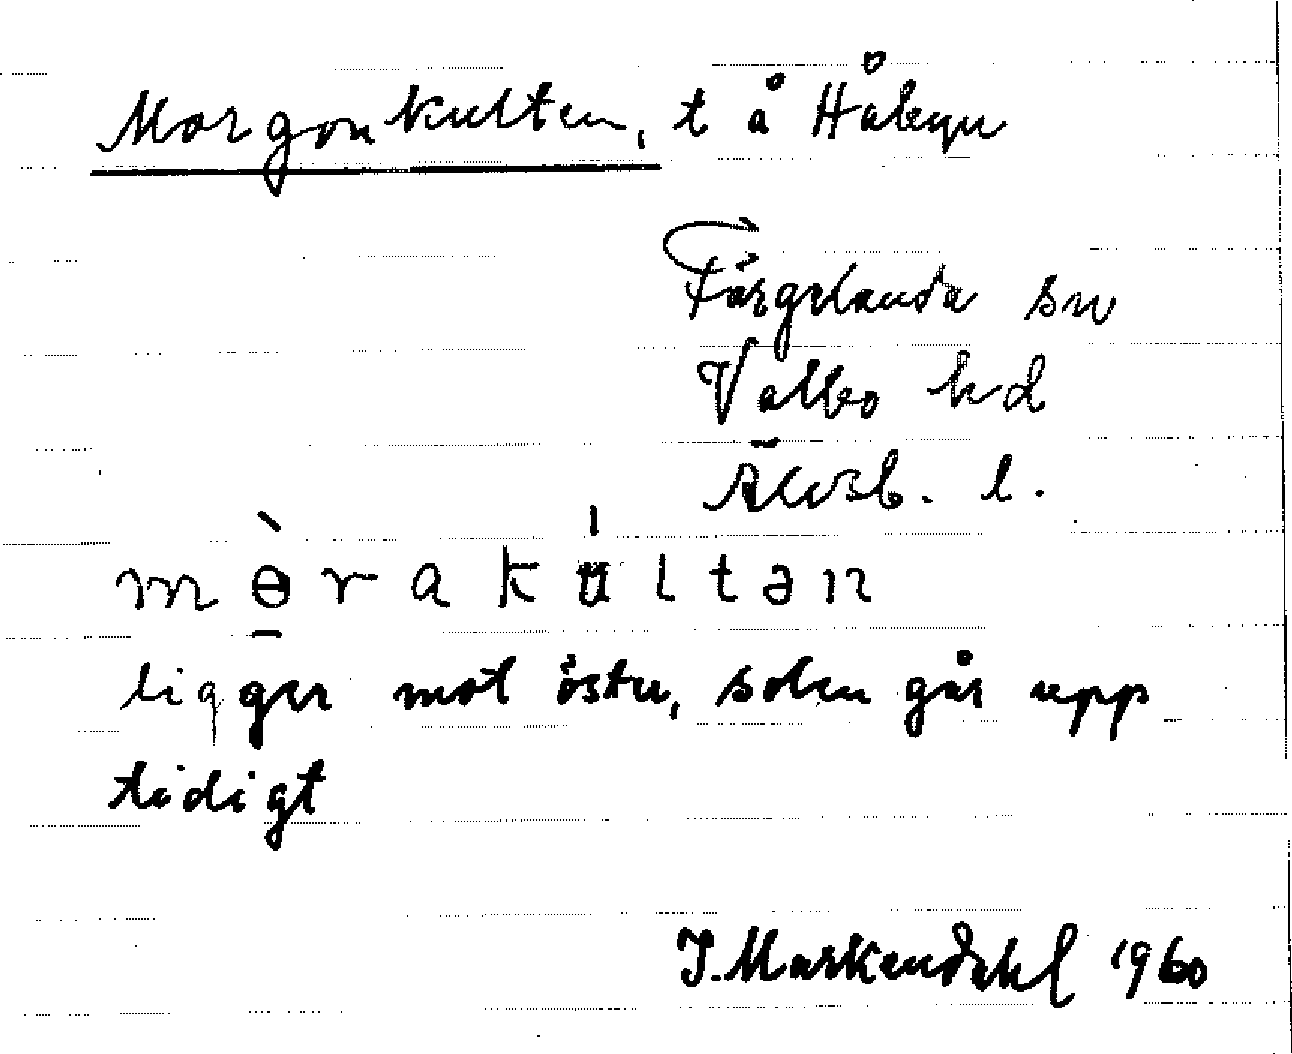 Morgonkulten, t å Håbyn
Färgelanda sn
Valbo hd
Älvsb. l.
mɵ̱̀rakʉ́ltən
ligger mot öster, solen går upp
tidigt
J. Markendahl 1960